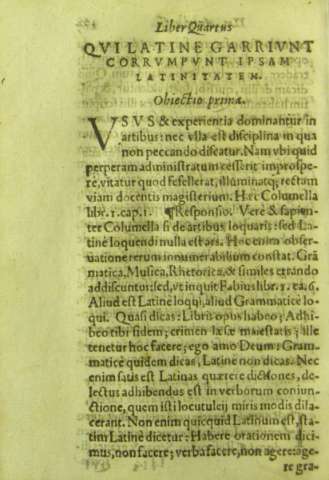 Liber Quartus
QVI LATINE GARRIVNT
CORRVMPVNT IPSAM
LATINITATEM.
Obiectio prima.
VSVS & experientia dominantur in
artibus: nec vlla est disciplina in qua
non peccando discatur. Nam vbi quid
perperam administratum cesserit improspe-
re, vitatur quod fefellerat, illuminatq; rectam
viam docentis magisterium. Hæc Columella
libr. 1. cap. 1. ¶Responsio. Verè & sapien-
ter Columella si de artibus loquaris: sed La-
tinè loquendi nulla est ars. Hoc enim obser-
uatione rerum innumerabilium constat. Grã
matica, Musica, Rhetorica, & similes errando
addiscuntur: sed, vt inquit Fabius libr. 1. ca. 6.
Aliud est Latinè loqui, aliud Grammaticè lo-
qui. Quasi dicas: Libris opus habeo; Adhi-
beo tibi fidem; crimen læsæ maiestatis; ille
tenetur hoc facere; ego amo Deum: Gram-
maticè quidem dicas, Latinè non dicas. Nec
enim satis est Latinas quærere dictiones, de-
lectus adhibendus est in verborum coniun-
ctione, quem isti locutuleij miris modis dila-
cerant. Non enim quicquid Latinum est, sta-
tim Latinè dicetur: Habere orationem dici-
mus, non facere; verba facere, non agere: age-
re gra-